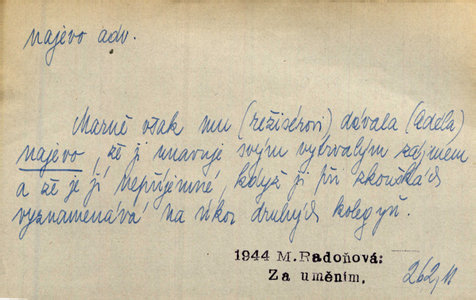 najevo adv.
Marně však mu (režisérovi) dávala (Adéla)
najevo, že ji unavuje svým vytrvalým zájmem
a že je jí nepříjemné, když ji při zkouškách
vyznamenává na úkor druhých kolegyň.
1944 M. Radoňová:
Za uměním.
262,11